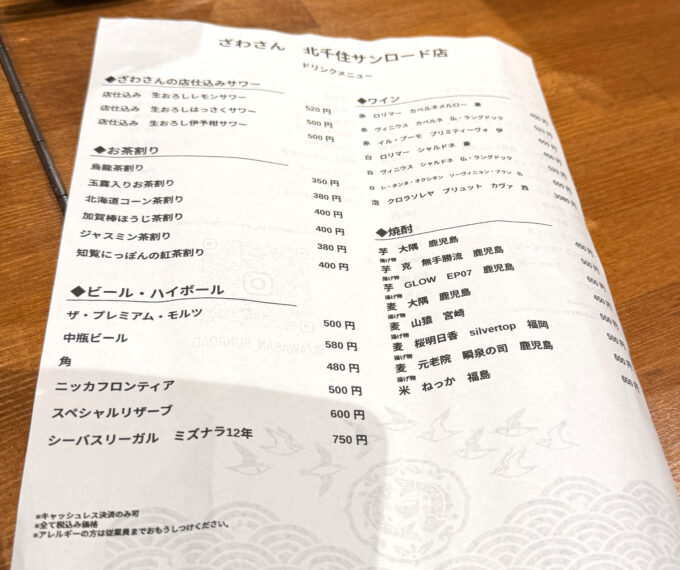 ざわさん 北千住サンロード店
ドリンクメニュー
◆ざわさんの店仕込みサワー
店仕込み 生おろしレモンサワー 520 円
店仕込み 生おろしはっさくサワー 500 円
店仕込み 生おろし伊予柑サワー 500 円
◆お茶割り
烏龍茶割り 350 円
玉露入りお茶割り 380 円
北海道コーン茶割り 400 円
加賀棒ほうじ茶割り 400 円
ジャスミン茶割り 380 円
知覧にっぽんの紅茶割り 400 円
◆ビール・ハイボール
ザ・プレミアム・モルツ 500 円
中瓶ビール 580 円
角 480 円
ニッカフロンティア 500 円
スペシャルリザーブ 600 円
シーバスリーガル ミズナラ12年 750 円
※キャッシュレス決済のみ可
※全て税込み価格
※アレルギーの方は従業員までおもうしつけください。
◆ワイン
赤 ロリマー カベルネメルロー 豪
赤 ヴィニウス カベルネ 仏・ラングドック
赤 イル・プーモ プリミティーヴォ 伊
白 ロリマー シャルドネ 豪
白 ヴィニウス シャルドネ 仏・ラングドック
白 レ・タンヌ・オクシタン ソーヴィニョン・ブラン 仏
泡 クロラソレヤ ブリュット カヴァ 西
◆焼酎
芋 大隅 鹿児島
揚げ物
芋 克 無手勝流 鹿児島
揚げ物
芋 GLOW EP07 鹿児島
揚げ物
麦 大隅 鹿児島
揚げ物
麦 山猿 宮崎
揚げ物
麦 桜明日香 silvertop 福岡
揚げ物
麦 元老院 瞬泉の司 鹿児島
揚げ物
米 ねっか 福島